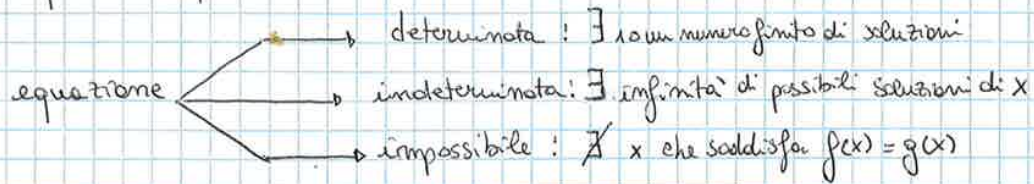 determinata : ∃ 1 o un numero finito di soluzioni
equazione indeterminata: ∃ infinità di possibili soluzioni di x
impossibile : ∄ x che soddisfa f(x) = g(x)